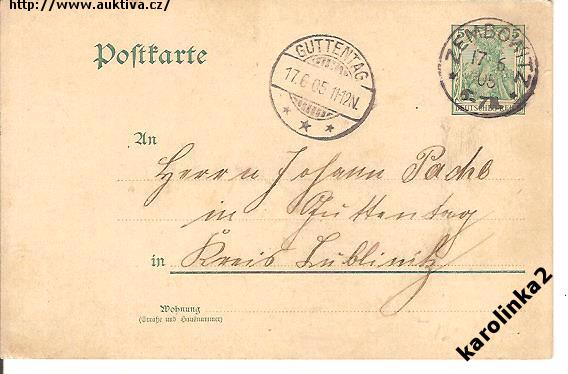 http://www.auktiva.cz/
Postkarte
GUTTENTAG
17.6.05.11-12N.
ZEMBOWITZ
17 6
05
DEUTSCHES REICH
An
Herrn Johann Pache
in Guttentag
in Kreis Lublinitz
Wohnung
(Straße und Hausnummer)
karolinka2